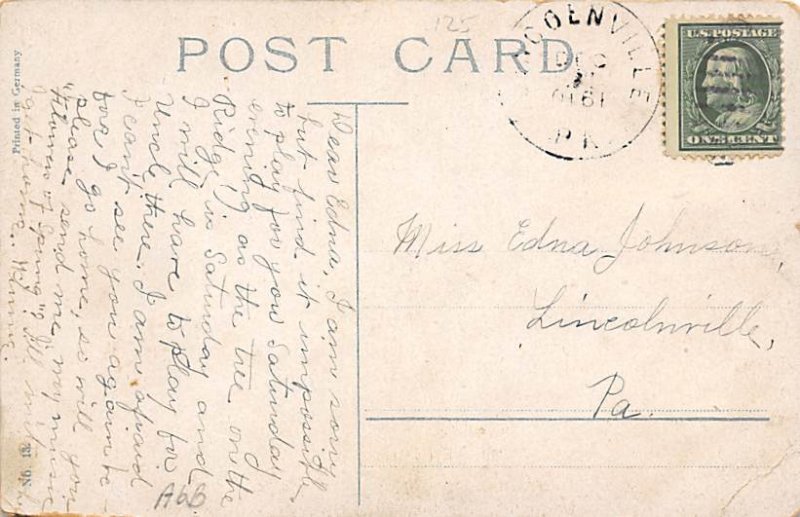 125
POST CARD
DEC
1910
U.S. POSTAGE
ONE CENT
Printed in Germany
No. 13
Dear Edna, I am sorry
but find it impossible
to play for you Saturday
evening as the tree on the
Ridge is Saturday and
I will have to play for
Uncle there. I am afraid
I can't see you again be-
for I go home, so will you
please send me my music
"Flowers of Spring" I'll
get home.
Miss Edna Johnson,
Lincolnville,
Pa.
A66